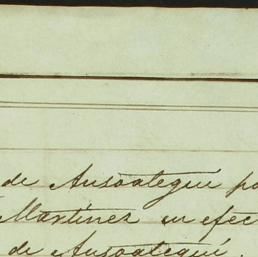 de Ansoategui po
Martinez en efec
de Ansoategui.